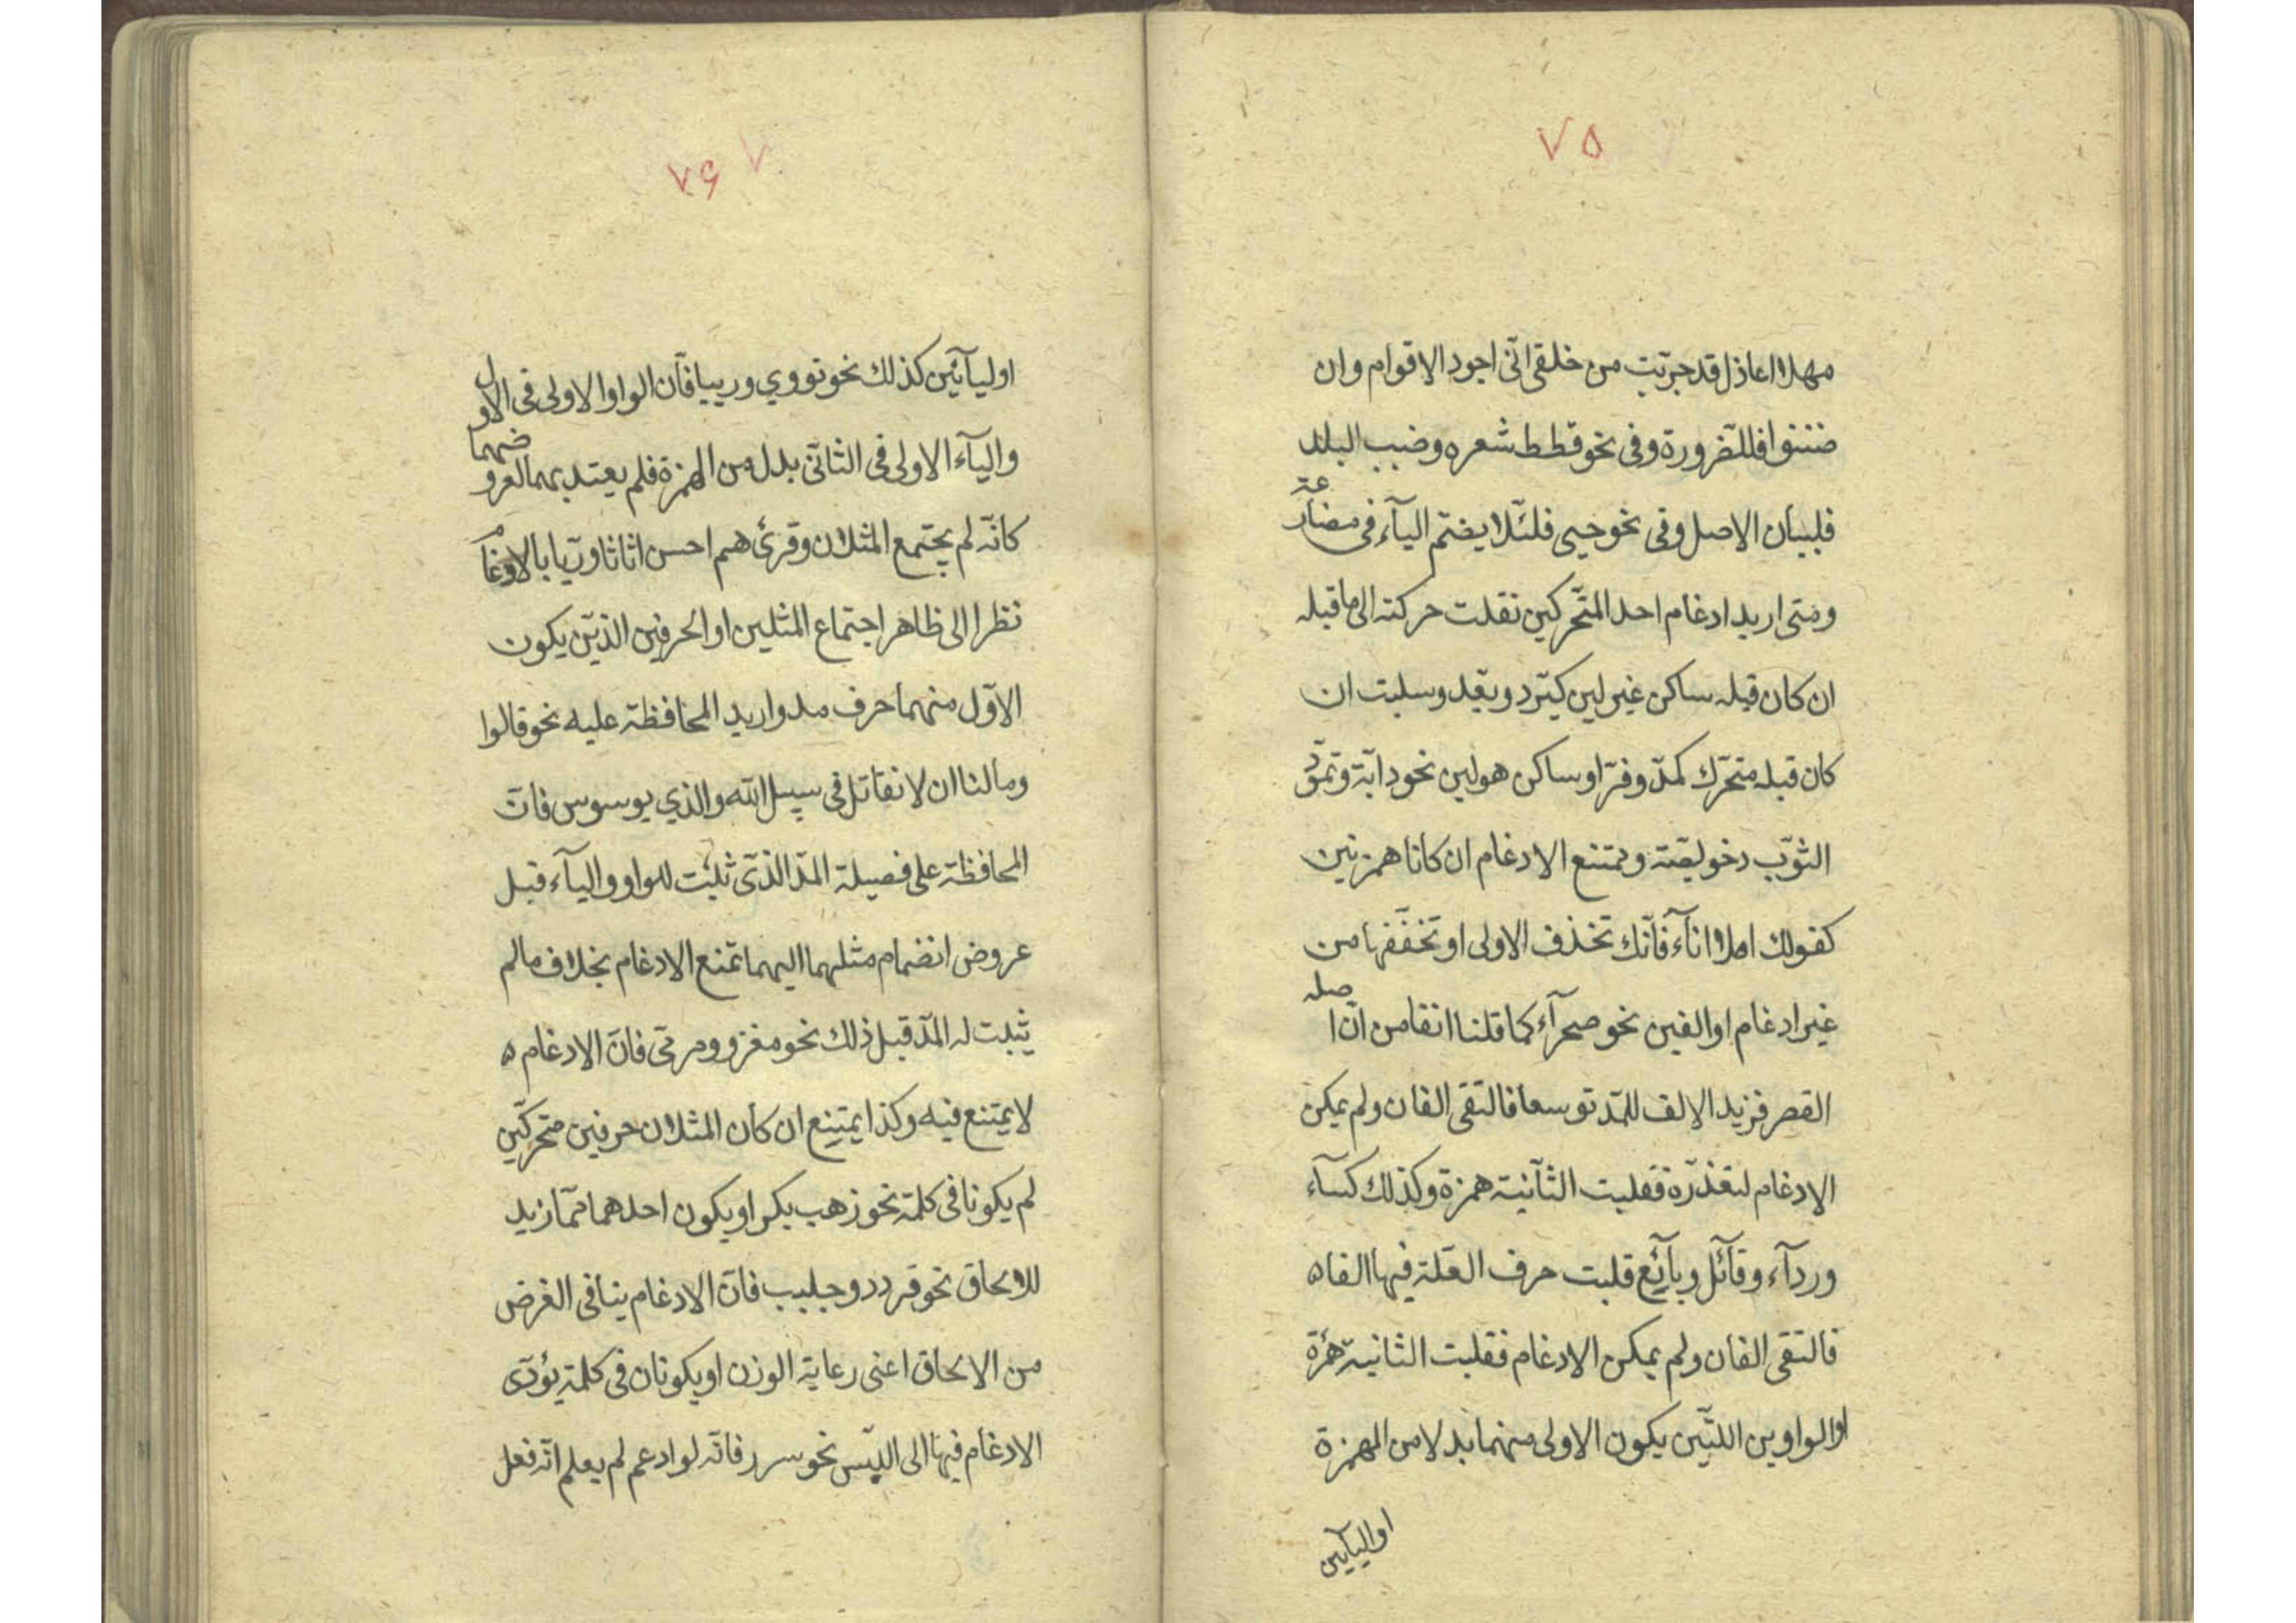 ۷۵
مهلا اعاذل قد جرّبت من خلقى انّى اجود الاقوام وان
ضننوا فللضّرورة وفى نحو قطط شعره وضبب البلد
فلبيان الاصل وفى نحو حيى فلئلّا يضمّ اليآء فى مضارعة
ومتى اريد ادغام احد المتحّركين نقلت حركته الى ماقبله
ان كان قبله ساكن غير لين كيّرد ويعّد وسلبت ان
كان قبله متحّرك كمدّ وفرّ او ساكن هو لين نحو دابّة وتموّد
الثوّب وخويصّة ويمتنع الادغام ان كانا همزتين
كقولك املا انآء فانّك تحذف الاولى او تخفّفها من
غير ادغام او الفين نحو صحرآء كما قلنا انفا من انّ اصله
القصر فزيد الالف للمّد توسعا فالتقى الفان ولم يمكن
الادغام لتعذّره فقلبت الثآنية همزة وكذلك كسآء
وردآء وقآئل وبآئع قلبت حرف العّلة فيها الفا ه
فالتقى الفان ولم يمكن الادغام فقلبت الثانية همزة
او الواوين اللتّين يكون الاولى منهما بدلا من الهمزة
او اليآيين
۷۶ ۷
او ليآئين كذلك نحو تووي ورييا فآن الواو الاولى فى الاول
واليآء الاولى فى الثانّى بدل من الهمزة فلم يعتد بهما لعروضهما
كانّه لم يجتمع المثلان وقرئ هم احسن اثاثا وريّا بالادغام
نظرا الى ظاهر اجتماع المثلين او الحرفين الذيّن يكون
الاوّل منهما حرف مد واريد المحافظة عليه نحو قالوا
ومالنا ان لا نقاتل فى سبيل الله والذي يوسوس فانّ
المحافظة على فضيلة المدّ الذّى ثبتت للواو واليآء قبل
عروض انضمام مثلهما اليهما تمنع الادغام بخلاف مالم
يثبت له المدّ قبل ذلك نحو مغزو ومرمى فانّ الادغام ه
لا يمتنع فيه وكذا يمتنع ان كان المثلان حرفين متحركّين
لم يكونا فى كلمة نحو ذهب بكر او يكون احدهما ممّا زيد
للالحاق نحو قردد وجلبب فانّ الادغام ينافى الغرض
من الالحاق اعنى رعاية الوزن او يكونان فى كلمة يؤدّى
الادغام فيها الى اللبس نحو سرر فانّه لو ادغم لم يعلم انّه فعل